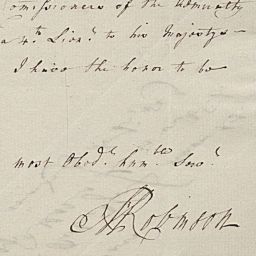 omissioners of the Admiralty
a 4th Lieut to his Majestys
I have the honor to be
most Obedt humble Servt
Robinson